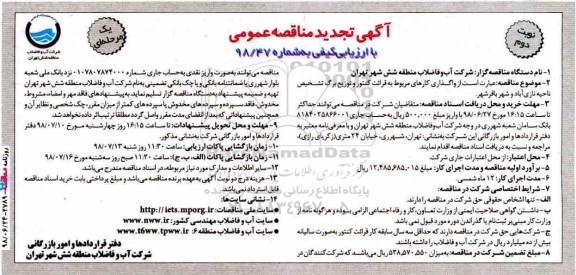 آگهی تجدید مناقصه عمومی
با ارزیابی کیفی به شماره ۹۸/۴۷
نوبت دوم
یک مرحله‌ای
شرکت آب و فاضلاب منطقه شش تهران
۱- نام دستگاه مناقصه گزار: شرکت آب و فاضلاب منطقه شش شهر تهران
۲- موضوع مناقصه: عبارت است از واگذاری کارهای مربوط به قرائت کنتور و توزیع برگ تشخیص
ناحیه نازی آباد و شهر باقرشهر.
۳- مهلت خرید و محل دریافت اسناد مناقصه: متقاضیان شرکت در مناقصه می توانند حداکثر
تا ساعت ۱۶:۱۵ مورخ ۹۸/۰۶/۲۷ با واریز مبلغ ۵۰۰,۰۰۰ ریال به حساب جاری ۸۱۸۴۰۳۵۸۶۶۰۰۱
بانک سامان شعبه شهرری در وجه شرکت آب و فاضلاب منطقه شش شهر تهران و با معرفی نامه معتبر به
دفتر قراردادها و امور بازرگانی این شرکت به نشانی: تهران، شهرری، خیابان ۲۴ متری (زکریای رازی)
مراجعه و نسبت به دریافت اسناد مناقصه اقدام نمایند.
۴- محل اعتبار: از محل اعتبارات جاری شرکت.
۵- برآورد اولیه مناقصه و مدت اجرای کار: مبلغ ۱۲,۴۸۵,۶۸۵,۰۱۵ ریال
۶- مدت اجرای کار: ۱۲ ماه شمسی.
۷- شرایط اختصاصی شرکت در مناقصه:
الف- تنها اشخاص حقوقی حق شرکت در مناقصه را دارند.
ب- داشتن گواهی صلاحیت ایمنی از وزارت تعاون، کار و رفاه اجتماعی الزامی بوده و هرگونه نامه از
وزارت کار مبنی بر ثبت نام یا گذراندن دوره مورد قبول نمی باشد.
ج- شرکت هایی حق شرکت در مناقصه دارند که حداقل سه سال سابقه کار قرائت کنتور به صورت سالیانه
بیش از ده میلیارد ریال در شرکت آب و فاضلاب را داشته باشند.
۸- مبلغ تضمین شرکت در مناقصه: به میزان ۵۳۸,۵۷۰,۵۵۰ ریال می باشد که شرکت کنندگان در
مناقصه می توانند به صورت واریز نقدی به حساب جاری شماره ۰۱۰۷۸۰۷۸۷۴۰۰۰ نزد بانک ملی شعبه
بلوار شهرری یا ضمانتنامه بانکی و یا چک بانکی تضمینی به نام شرکت آب و فاضلاب منطقه شش تهران
تهیه و ضمیمه پیشنهاد به دستگاه مناقصه گزار تسلیم نماید. به پیشنهادهای فاقد مهر و امضاء، مشروط،
مخدوش، فاقد سپرده و سپرده های مخدوش یا سپرده های کمتر از میزان مقرر، چک شخصی و نظایر آن و
همچنین پیشنهاداتی که بعد از انقضای مدت مقرر واصل گردد مطلقا ترتیب اثر داده نخواهد شد.
۹- مهلت و محل تحویل پیشنهادات: تا ساعت ۱۶:۱۵ روز چهارشنبه مورخ ۹۸/۰۷/۱۰ دفتر
قراردادها و امور بازرگانی شرکت به نشانی مذکور.
۱۰- زمان بازگشایی پاکات ارزیابی: ساعت ۱۱:۳۰ صبح روز شنبه ۹۸/۰۷/۱۳
۱۱- زمان بازگشایی پاکات (الف، ب، ج): ساعت ۱۱:۳۰ صبح روز سه شنبه مورخ ۹۸/۰۷/۱۶
۱۲- سایر اطلاعات و مدارک مورد نیاز مربوطه، در اسناد مناقصه مندرج می باشد.
۱۳- هزینه درج دو نوبت آگهی به عهده برنده مناقصه می باشد و مبلغ پرداختی بابت خرید اسناد مناقصه
قابل استرداد نمی باشد.
۱۴- نشانی سایت ها:
سایت ملی مناقصات: http://iets.mporg.ir
سایت آب و فاضلاب مهندسی کشور: www.nww.ir
سایت آب و فاضلاب منطقه ۶: www.t6ww.tpww.ir
دفتر قراردادها و امور بازرگانی
شرکت آب و فاضلاب منطقه شش تهران